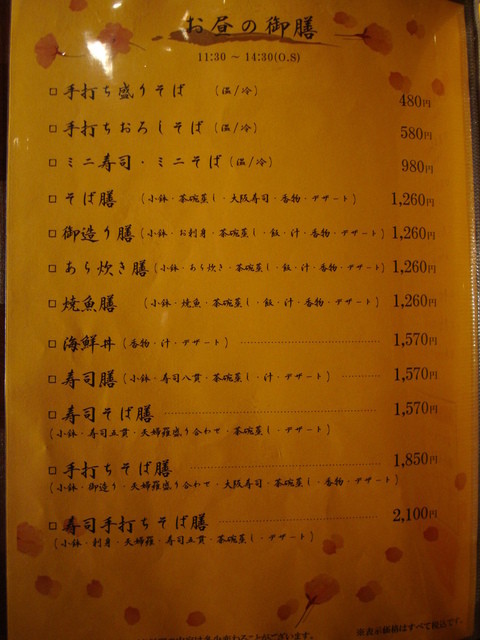 お昼の御膳
11:30 ～ 14:30(O.S)
□ 手打ち盛りそば （温/冷） 480円
□ 手打ちおろしそば （温/冷） 580円
□ ミニ寿司・ミニそば （温/冷） 980円
□ そば膳 （小鉢・茶碗蒸し・大阪寿司・香物・デザート） 1,260円
□ 御造り膳 （小鉢・お刺身・茶碗蒸し・飯・汁・香物・デザート） 1,260円
□ あら炊き膳 （小鉢・あら炊き・茶碗蒸し・飯・汁・香物・デザート） 1,260円
□ 焼魚膳 （小鉢・焼魚・茶碗蒸し・飯・汁・香物・デザート） 1,260円
□ 海鮮丼 （香物・汁・デザート） 1,570円
□ 寿司膳 （小鉢・寿司八貫・茶碗蒸し・汁・デザート） 1,570円
□ 寿司そば膳 1,570円
（小鉢・寿司五貫・天婦羅盛り合わせ・茶碗蒸し・デザート）
□ 手打ちそば膳 1,850円
（小鉢・御造り・天婦羅盛り合わせ・大阪寿司・茶碗蒸し・香物・デザート）
□ 寿司手打ちそば膳 2,100円
（小鉢・刺身・天婦羅・寿司五貫・茶碗蒸し・デザート）
※表示価格はすべて税込です。